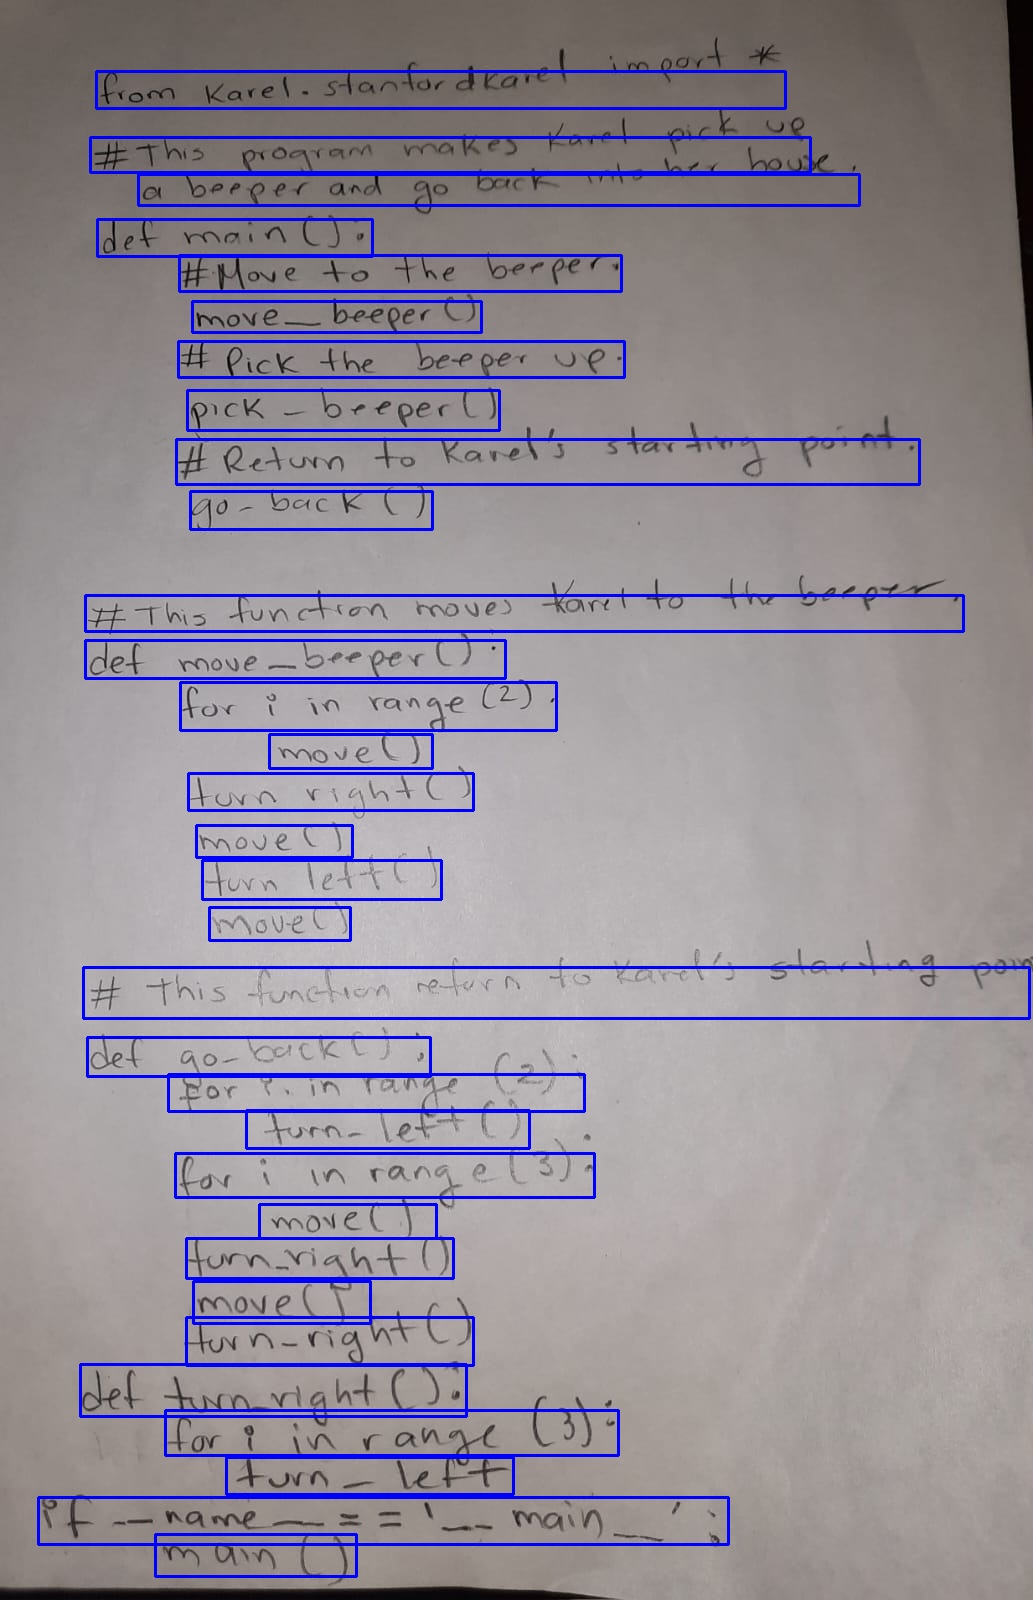 from Karel.stanfordkarel import *
# This program makes Karel pick up
a beeper and go back into her house.
def main():
#Move to the beeper.
move_beeper()
# Pick the beeper up.
pick_beeper()
# Return to Karel's starting point.
go-back()
# This function moves Karel to the beeper.
def move_beeper():
for i in range(2):
move()
turn right()
move()
turn left()
move()
# This function return to Karel's starting poin
def go-back():
for i in range (2):
turn-left()
for i in range(3):
move()
turn_right()
move()
turn-right()
def turn_right():
for i in range (3):
turn_left
if __name__ == '__main__':
main()